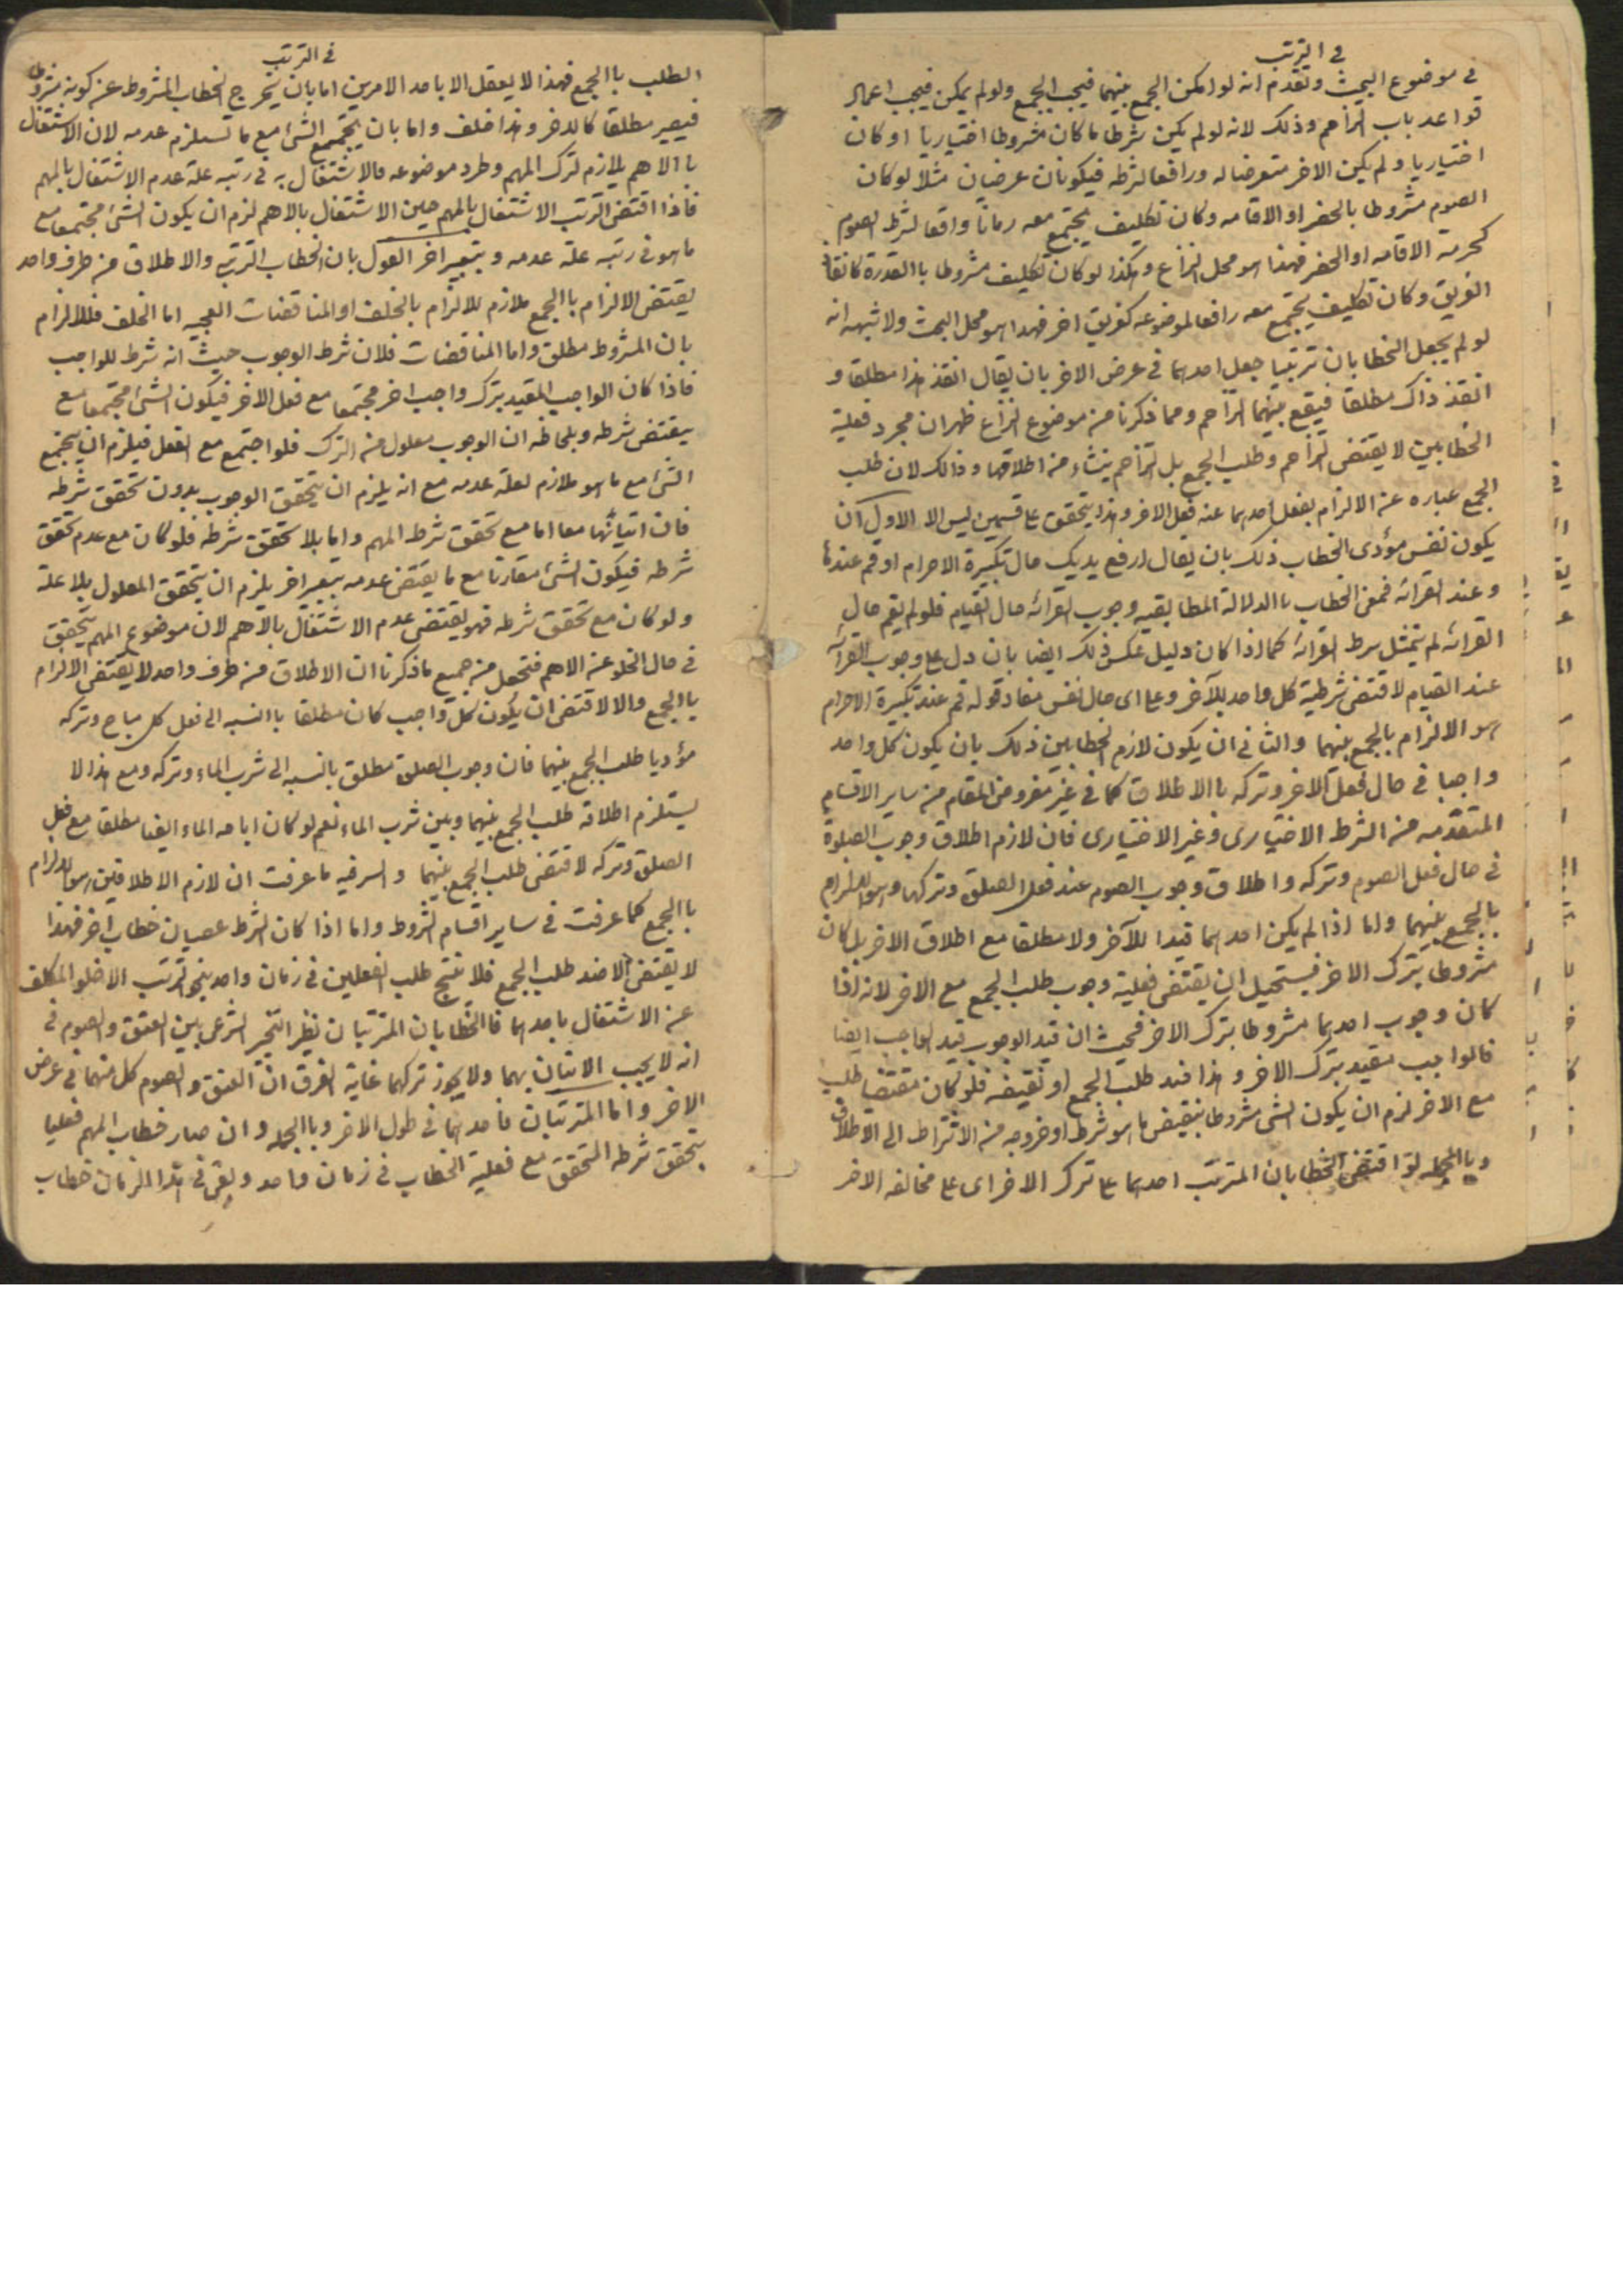 في الترتب
في موضوع البحث وتقدم انه لو امكن الجمع بينهما فيجب الجمع ولو لم يمكن فيجب اعمال
قواعد باب التزاحم وذلك لانه لو لم يكن شرط ما كان مشروطا اختياريا او كان
اختياريا ولم يكن الاخر متعرضا له ورافعا لشرطه فيكونان عرضيان مثلا لو كان
الصوم مشروطا بالحضر او الاقامه وكان تكليف يجتمع معه زمانا واقعا لشرط الصوم
كحرمة الاقامه او الحضر فهذا هو محل النزاع وهكذا لو كان تكليف مشروطا باالقدرة كانقاذ
الغريق وكان تكليف يجتمع معه رافعا لموضوعه كغريق اخر فهذا هو محل البحث ولا شبهه انه
لو لم يجعل الخطابان ترتبيا جعل احدهما في عرض الاخر بان يقال انقذ هذا مطلقا و
انقذ ذاك مطلقا فيقع بينهما التزاحم ومما ذكرنا من موضوع النزاع ظهر ان مجرد فعلية
الخطابين لا يقتضى التزاحم وطلب الجمع بل التزاحم ينشاء من اطلاقهما وذالك لان طلب
الجمع عباره عن الالزام بفعل احدهما عند فعل الاخر وهذا يتحقق على قسمين ليس الا الاول ان
يكون نفس مؤدى الخطاب ذلك بان يقال ارفع يديك حال تكبيرة الاحرام او قم عندها
وعند القرائه فمعنى الخطاب باالدلالة المطابقيه وجوب القرائه حال القيام فلو لم يقم حال
القرائه لم يتمثل شرط القرائه كما اذا كان دليل عكس ذلك ايضا بان دل على وجوب القرآئه
عند القيام لاقتضى شرطية كل واحد للآخر وعلى اى حال نفس مفاد قوله قم عند تكبيرة الاحرام
هو الالزام بالجمع بينهما والثانى ان يكون لازم الخطابين ذلك بان يكون كل واحد
واجبا في حال فعل الاخر وتركه باالاطلاق كما في غير مفروض المقام من ساير الاقسام
المتقدمه من الشرط الاختيارى وغير الاختيارى فان لازم اطلاق وجوب الصلوة
في حال فعل الصوم وتركه واطلاق وجوب الصوم عند فعل الصلوة وتركها هو الالزام
بالجمع بينهما واما اذا لم يكن احدهما قيدا للآخر ولا مطلقا مع اطلاق الاخر بل كان
مشروطا بترك الاخر فيستحيل ان يقتضى فعلية وجوب طلب الجمع مع الاخر لانه اذا
كان وجوب احدهما مشروطا بترك الاخر فحيث ان قيد الوجوب قيد الواجب ايضا
فالواجب مقيد بترك الاخر وهذا ضد طلب الجمع او نقيضه فلو كان مقتضيا طلب
مع الاخر لزم ان يكون الشى مشروطا بنقيض ما هو شرط او خروجه من الاشتراط الى الاطلاق
وباالجمله لو اقتضى الخطابان المترتب احدهما على ترك الاخر اى على مخالفه الاخر
في الترتب
الطلب باالجمع فهذا لا يعقل الا باحد الامرين اما بان يخرج الخطاب المشروط عن كونه مشروطا
فيصير مطلقا كالاخر وهذا خلف واما بان يجتمع الشئ مع ما تستلزم عدمه لان الاشتغال
باالاهم يلازم لترك المهم وطرد موضوعه فالاشتغال به في رتبه علة عدم الاشتغال بالمهم
فاذا اقتضى الترتب الاشتغال بالمهم حين الاشتغال بالاهم لزم ان يكون الشئ مجتمعا مع
ما هو في رتبه علة عدمه وبتعبير اخر القول بان الخطاب الترتبى والاطلاق من طرف واحد
يقتضى الالزام باالجمع ملازم للالزام بالخلف او المناقضات العجيبه اما الخلف فللالزام
بان المشروط مطلق واما المناقضات فلان شرط الوجوب حيث انه شرط للواجب
فاذا كان الواجب المقيد بترك واجب اخر مجتمعا مع فعل الاخر فيكون الشئ مجتمعا مع
نقيض شرطه وبلحاظه ان الوجوب معلول من الترك فلو اجتمع مع الفعل فيلزم ان يجتمع
الشئ مع ما هو ملازم لعلة عدمه مع انه يلزم ان يتحقق الوجوب بدون تحقق شرطه
فان اتيانهما معا اما مع تحقق شرط المهم واما بلا تحقق شرطه فلو كان مع عدم تحقق
شرطه فيكون الشئ مقارنا مع ما يقتضى عدمه بتعبير اخر يلزم ان يتحقق المعلول بلا علة
ولو كان مع تحقق شرطه فهو يقتضى عدم الاشتغال بالاهم لان موضوع المهم يتحقق
في حال الخلو عن الاهم فتحصل من جميع ما ذكرنا ان الاطلاق من طرف واحد لا يقتضى الالزام
باالجمع والا لاقتضى ان يكون كل واجب كان مطلقا باالنسبه الى فعل كل مباح وتركه
مؤديا طلب الجمع بينهما فان وجوب الصلوة مطلق بالنسبه الى شرب الماء وتركه ومع هذا لا
يستلزم اطلاقه طلب الجمع بينهما وبين شرب الماء نعم لو كان اباحه الماء ايضا مطلقا مع فعل
الصلوة وتركه لاقتضى طلب الجمع بينهما والسر فيه ما عرفت ان لازم الاطلاقين هو الالزام
باالجمع كما عرفت في ساير اقسام الشروط واما اذا كان الشرط عصيان خطاب اخر فهذا
لا يقتضى الا ضد طلب الجمع فلا ينتج طلب الفعلين في زمان واحد بنحو الترتب الا خلو المكلف
عن الاشتغال باحدهما فاالخطابان المترتبان نظير التخير الشرعى بين العتق والصوم في
انه لا يجب الاتيان بهما ولا يجوز تركهما غاية الفرق ان العتق والصوم كل منهما في عرض
الاخر واما المترتبان فاحدهما في طول الاخر وباالجمله وان صار خطاب المهم فعليا
بتحقق شرطه المتحقق مع فعلية الخطاب في زمان واحد وبقى في هذا الزمان خطاب